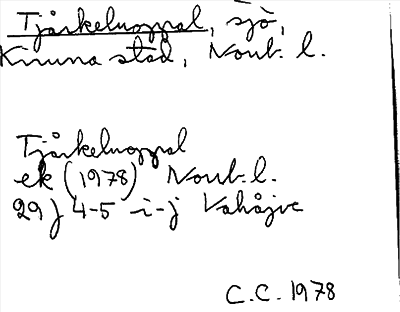 Tjårkeluoppal, sjö,
Kiruna stad, Norrb. l.
Tjårkeluoppal
ek (1978) Norrb. l.
29J 4-5 i-j Vahåjve
C.C. 1978